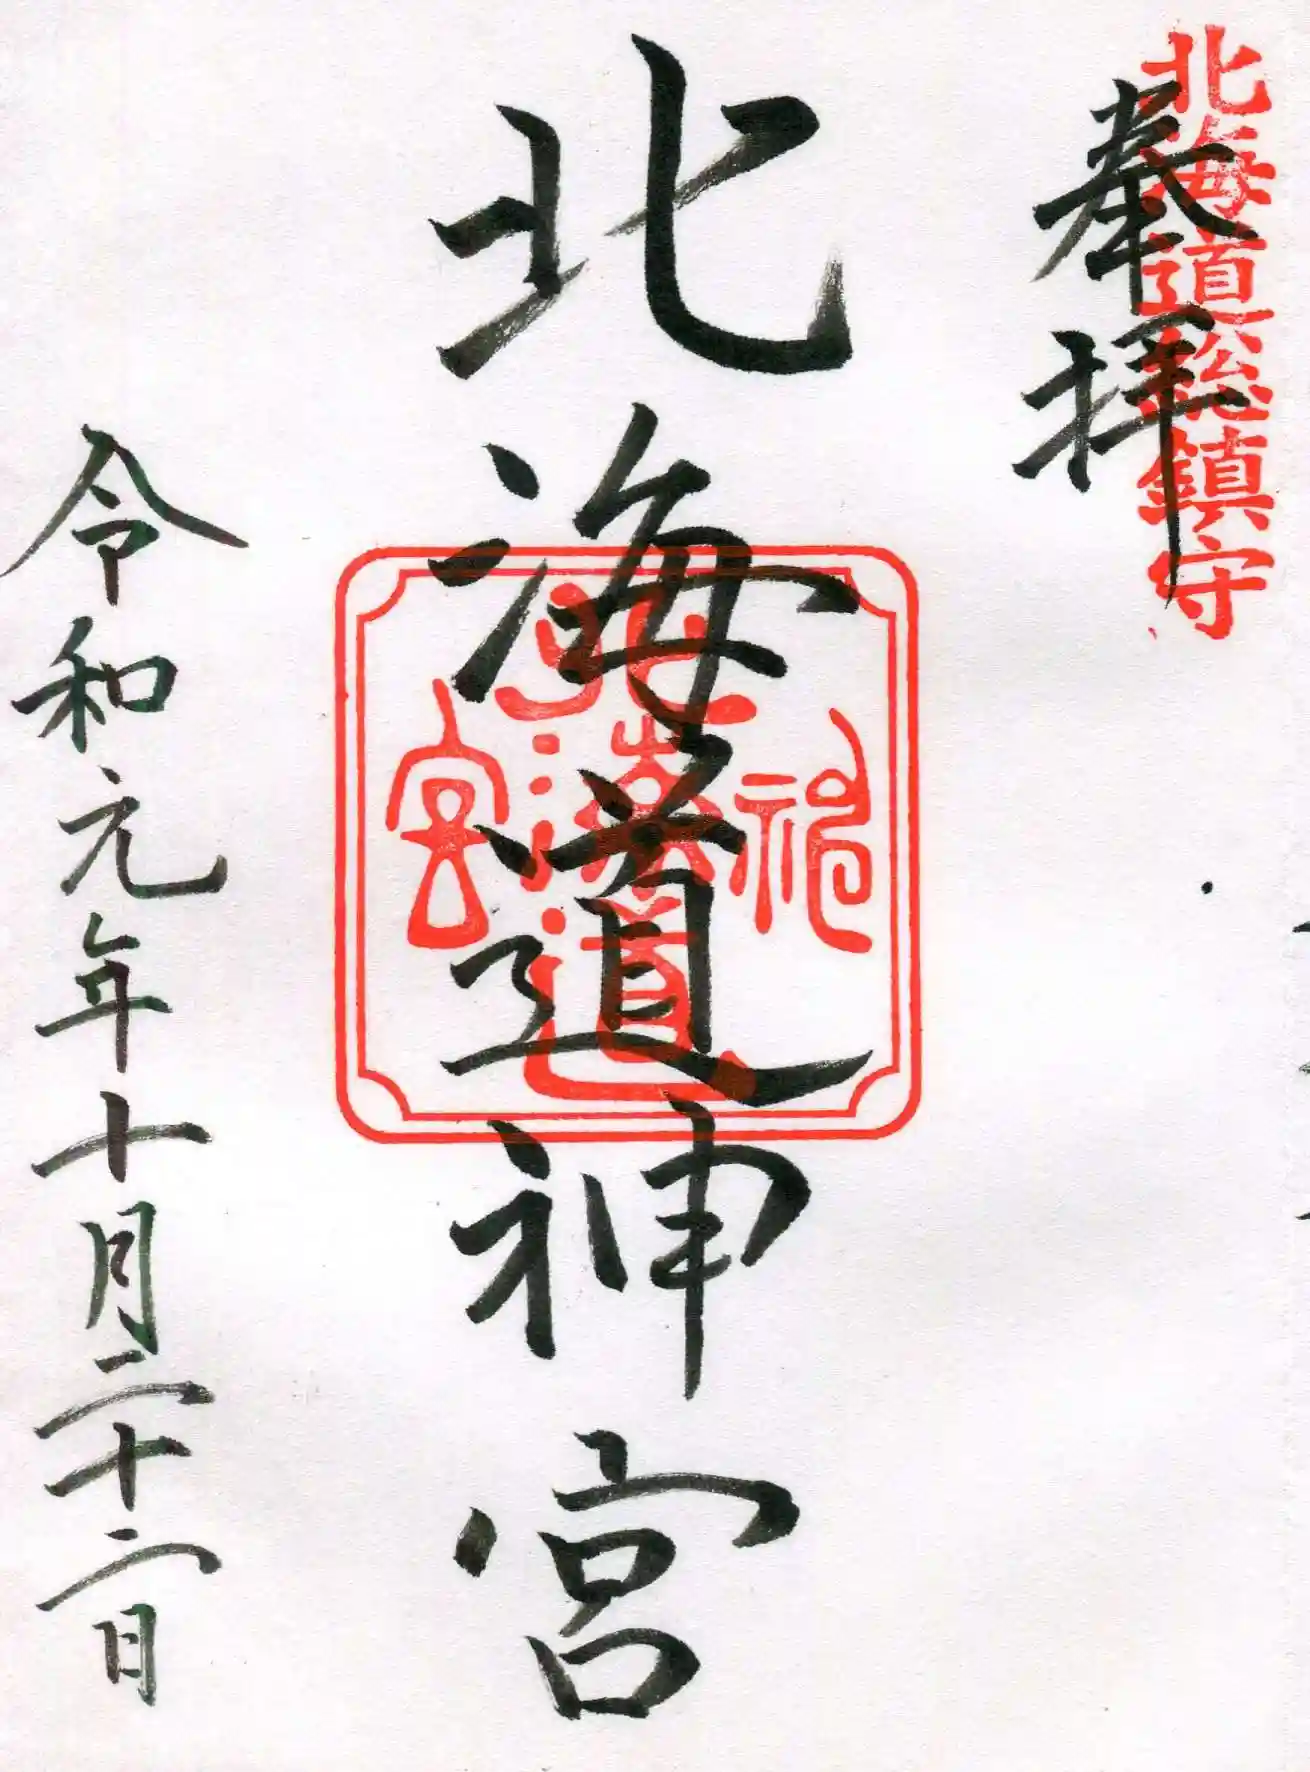 北海道総鎮守
奉拝
北海道神宮
北海道神宮
令和元年十月二十二日